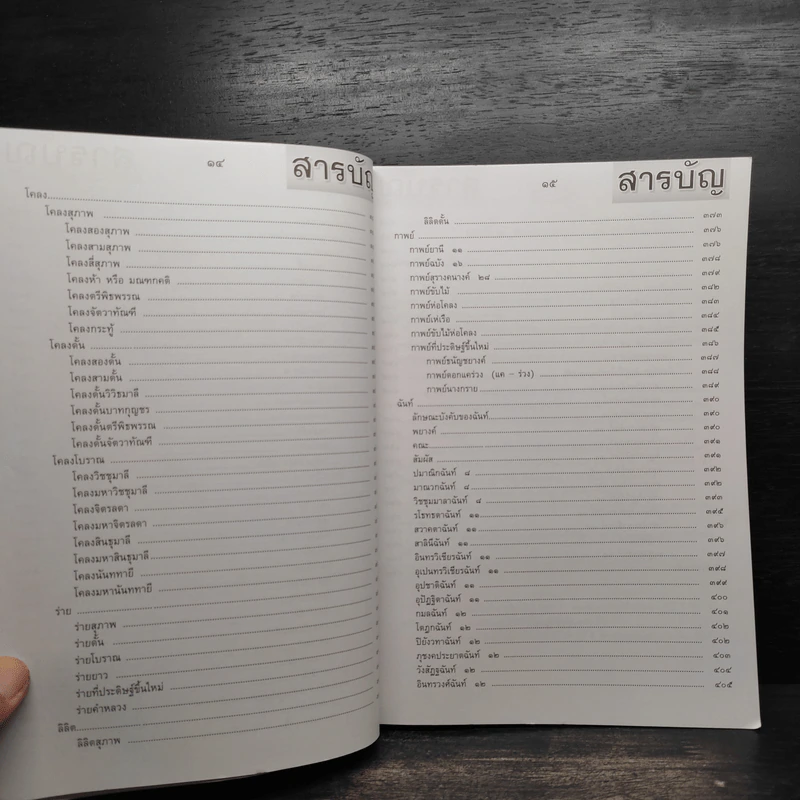 ๑๔ สารบัญ
โคลง
โคลงสุภาพ
โคลงสองสุภาพ
โคลงสามสุภาพ
โคลงสี่สุภาพ
โคลงห้า หรือ มณฑกคติ
โคลงตรีพิธพรรณ
โคลงจัตวาทัณฑี
โคลงกระทู้
โคลงดั้น
โคลงสองดั้น
โคลงสามดั้น
โคลงดั้นวิวิธมาลี
โคลงดั้นบาทกุญชร
โคลงดั้นตรีพิธพรรณ
โคลงดั้นจัตวาทัณฑี
โคลงโบราณ
โคลงวิชชุมาลี
โคลงมหาวิชชุมาลี
โคลงจิตรลดา
โคลงมหาจิตรลดา
โคลงสินธุมาลี
โคลงมหาสินธุมาลี
โคลงนันททายี
โคลงมหานันททายี
ร่าย
ร่ายสุภาพ
ร่ายดั้น
ร่ายโบราณ
ร่ายยาว
ร่ายที่ประดิษฐ์ขึ้นใหม่
ร่ายคำหลวง
ลิลิต
ลิลิตสุภาพ
๑๕ สารบัญ
ลิลิตดั้น ๓๗๓
กาพย์ ๓๗๖
กาพย์ยานี ๑๑ ๓๗๖
กาพย์ฉบัง ๑๖ ๓๗๘
กาพย์สุรางคนางค์ ๒๘ ๓๗๙
กาพย์ขับไม้ ๓๘๒
กาพย์ห่อโคลง ๓๘๓
กาพย์เห่เรือ ๓๘๔
กาพย์ขับไม้ห่อโคลง ๓๘๕
กาพย์ที่ประดิษฐ์ขึ้นใหม่ ๓๘๖
กาพย์ธนัญชยางค์ ๓๘๗
กาพย์ดอกแคร่วง (แค - ร่วง) ๓๘๘
กาพย์นางกราย ๓๘๙
ฉันท์ ๓๙๐
ลักษณะบังคับของฉันท์ ๓๙๐
พยางค์ ๓๙๐
คณะ ๓๙๑
สัมผัส ๓๙๑
ปมาณิกฉันท์ ๘ ๓๙๒
มาณวกฉันท์ ๘ ๓๙๒
วิชชุมมาลาฉันท์ ๘ ๓๙๓
รโธทธตาฉันท์ ๑๑ ๓๙๕
สวาคตาฉันท์ ๑๑ ๓๙๖
สาลินีฉันท์ ๑๑ ๓๙๖
อินทรวิเชียรฉันท์ ๑๑ ๓๙๗
อุเปนทรวิเชียรฉันท์ ๑๑ ๓๙๘
อุปชาติฉันท์ ๑๑ ๓๙๙
อุปัฏฐิตาฉันท์ ๑๑ ๔๐๐
กมลฉันท์ ๑๒ ๔๐๑
โตฎกฉันท์ ๑๒ ๔๐๒
ปิยังวทาฉันท์ ๑๒ ๔๐๒
ภุชงคประยาตฉันท์ ๑๒ ๔๐๓
วังสัฏฐฉันท์ ๑๒ ๔๐๔
อินทรวงค์ฉันท์ ๑๒ ๔๐๕